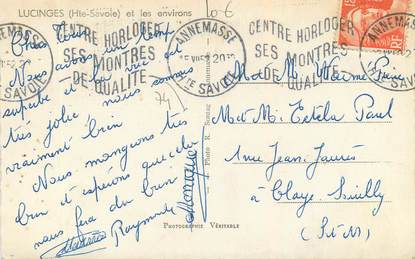 LUCINGES (Hte-Savoie) et les environs
10 €
ANNEMASSE
CENTRE HORLOGER
SES MONTRES
DE QUALITÉ
Hte SAVOIE
ANNEMASSE
Hte SAVOIE
CENTRE HORLOGER
SES MONTRES
DE QUALITÉ
Nous avons un temps
superbe et la vue est
très jolie, nous sommes
vraiment bien
Nous mangeons très
bien et espérons que cela
nous fera du bien
Raymonde
Monique
74
Mr et Mme Estela Paul
1 rue Jean Jaurès
à Claye Souilly
(S-et-M)
PHOTOGRAPHIE VÉRITABLE